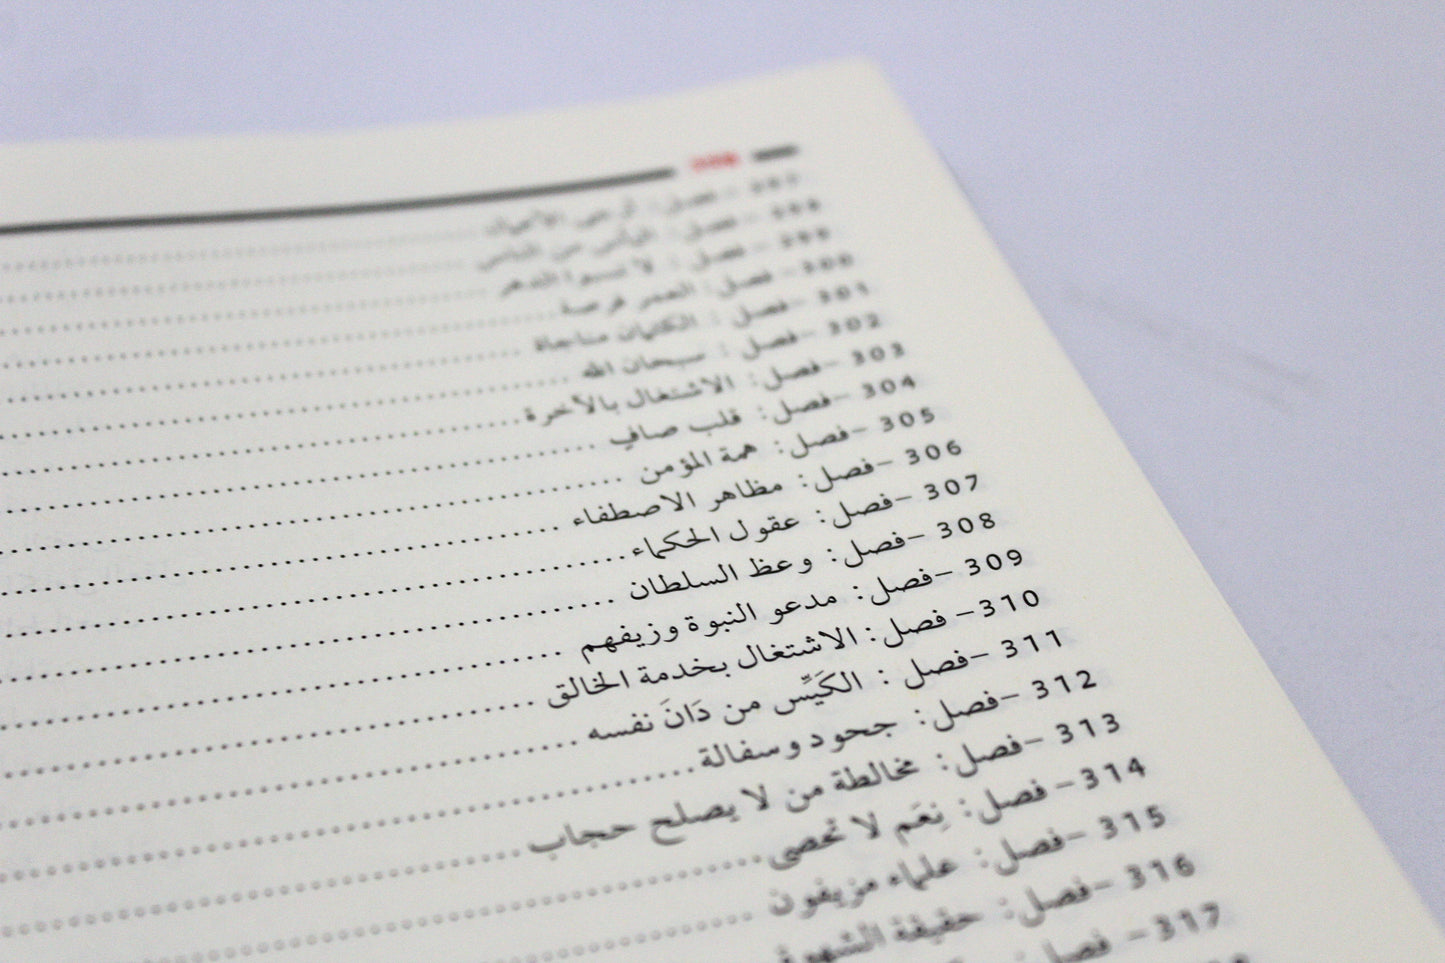 297 – فصل:
298 – فصل: اليأس من الناس
299 – فصل: لا تسبوا الدهر
300 – فصل: العمر فرصة
301 – فصل: الكلمات مناجاة
302 – فصل: سبحان الله
303 – فصل: الاشتغال بالآخرة
304 – فصل: قلب صافٍ
305 – فصل: همة المؤمن
306 – فصل: مظاهر الاصطفاء
307 – فصل: عقول الحكماء
308 – فصل: وعظ السلطان
309 – فصل: مدعو النبوة وزيفهم
310 – فصل: الاشتغال بخدمة الخالق
311 – فصل: الكَيِّس من دَانَ نفسه
312 – فصل: جحود وسفالة
313 – فصل: مخالطة من لا يصلح حجاب
314 – فصل: نِعَم لا تحصى
315 – فصل: علماء مزيفون
316 – فصل: حقيقة الشهوة
317 – فصل: